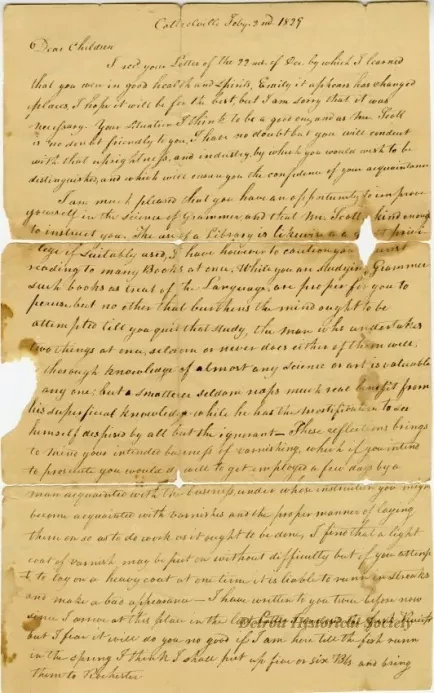 Feby. 2nd 1839
Dear Children
I recd your Letter of the 22nd of Dec. by which I learned
that you were in good health and Spirits, Emily it appears has changed
places, I hope it will be for the best, but I am sorry that it was
necessary. Your Situation I think to be a good one, and as Mr. Scott
is no doubt friendly to you, I have no doubt but you will conduct
with that uprightness, and industry, by which you would wish to be
distinguished, and which will ensure you the confidence of your acquaintance
I am much pleased that you have an oppertunity to improve
yourself in the Science of Grammer, and that Mr. Scott is kind enough
to instruct you. The use of a Library is likewise a great
lege if Suitably used, I have however to caution you
reading to many Books at once. While you are studying Grammer
such books as treat of the Language, are proper for you to
peruse but no other that burthens the mind ought to be
attempted till you quit that study, the man who undertakes
two things at once, seldom or never does either of them well,
thorough knowledge of almost any science or art is valuable
any one: but a smatterer seldom reaps much real benefit from
his superficial knowledge while he has the mortification to see
himself despised by all but the ignorant— These reflections brings
to mind your intended business of varnishing, which if you intend
to prosecute you would do well to get employed a few days by a
man acquainted with the business, under whose instruction you might
become acquainted with varnishes and the proper manner of laying
them on so as to do work as it ought to be done, I find that a light
coat of varnish may be put on without difficulty but if you attempt
to lay on a heavy coat at one time it is liable to runn in streaks
and make a bad appearance— I have written to you twice before now
since I arrived at this place in the
but I fear it will do you no good if I am here till the fish runn
in the spring I think I shall put up five or six Bbls and bring
them to Rochester
Detroit Historical Society